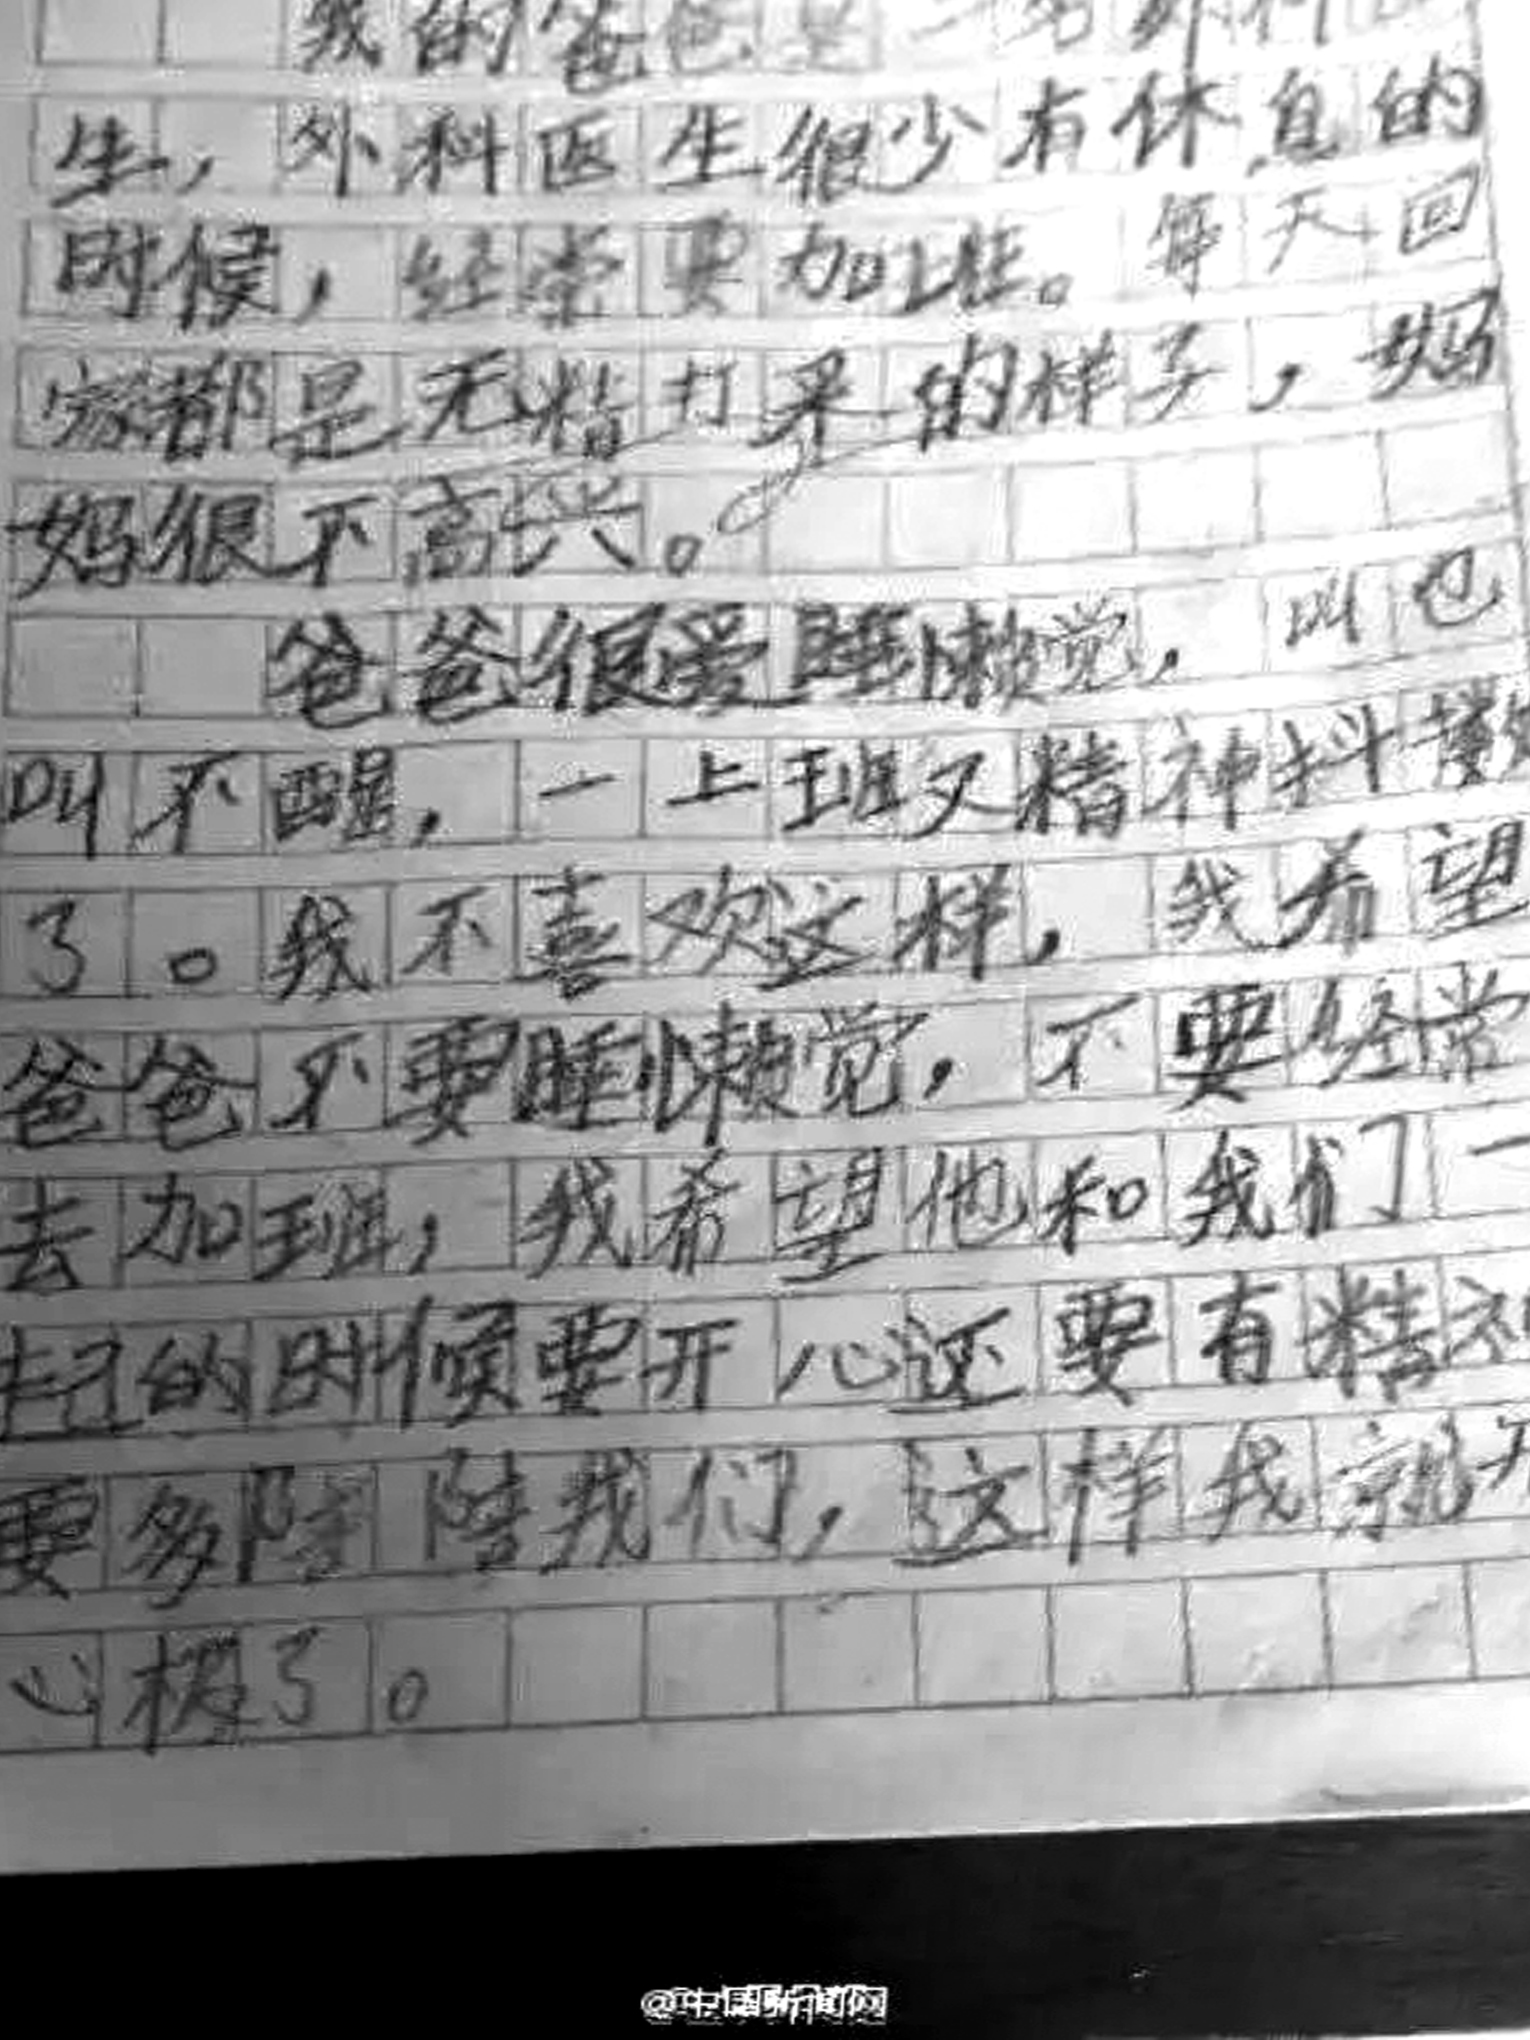 我的爸爸是一名外科医
生，外科医生很少有休息的
时候，经常要加班。每天回
家都是无精打采的样子，妈
妈很不高兴。
爸爸很爱睡懒觉，叫也
叫不醒，一上班又精神抖擞
了。我不喜欢这样，我希望
爸爸不要睡懒觉，不要经常
去加班，我希望他和我们一
起的时候要开心还要有精神
要多陪陪我们，这样我就开
心极了。
@中国新闻网